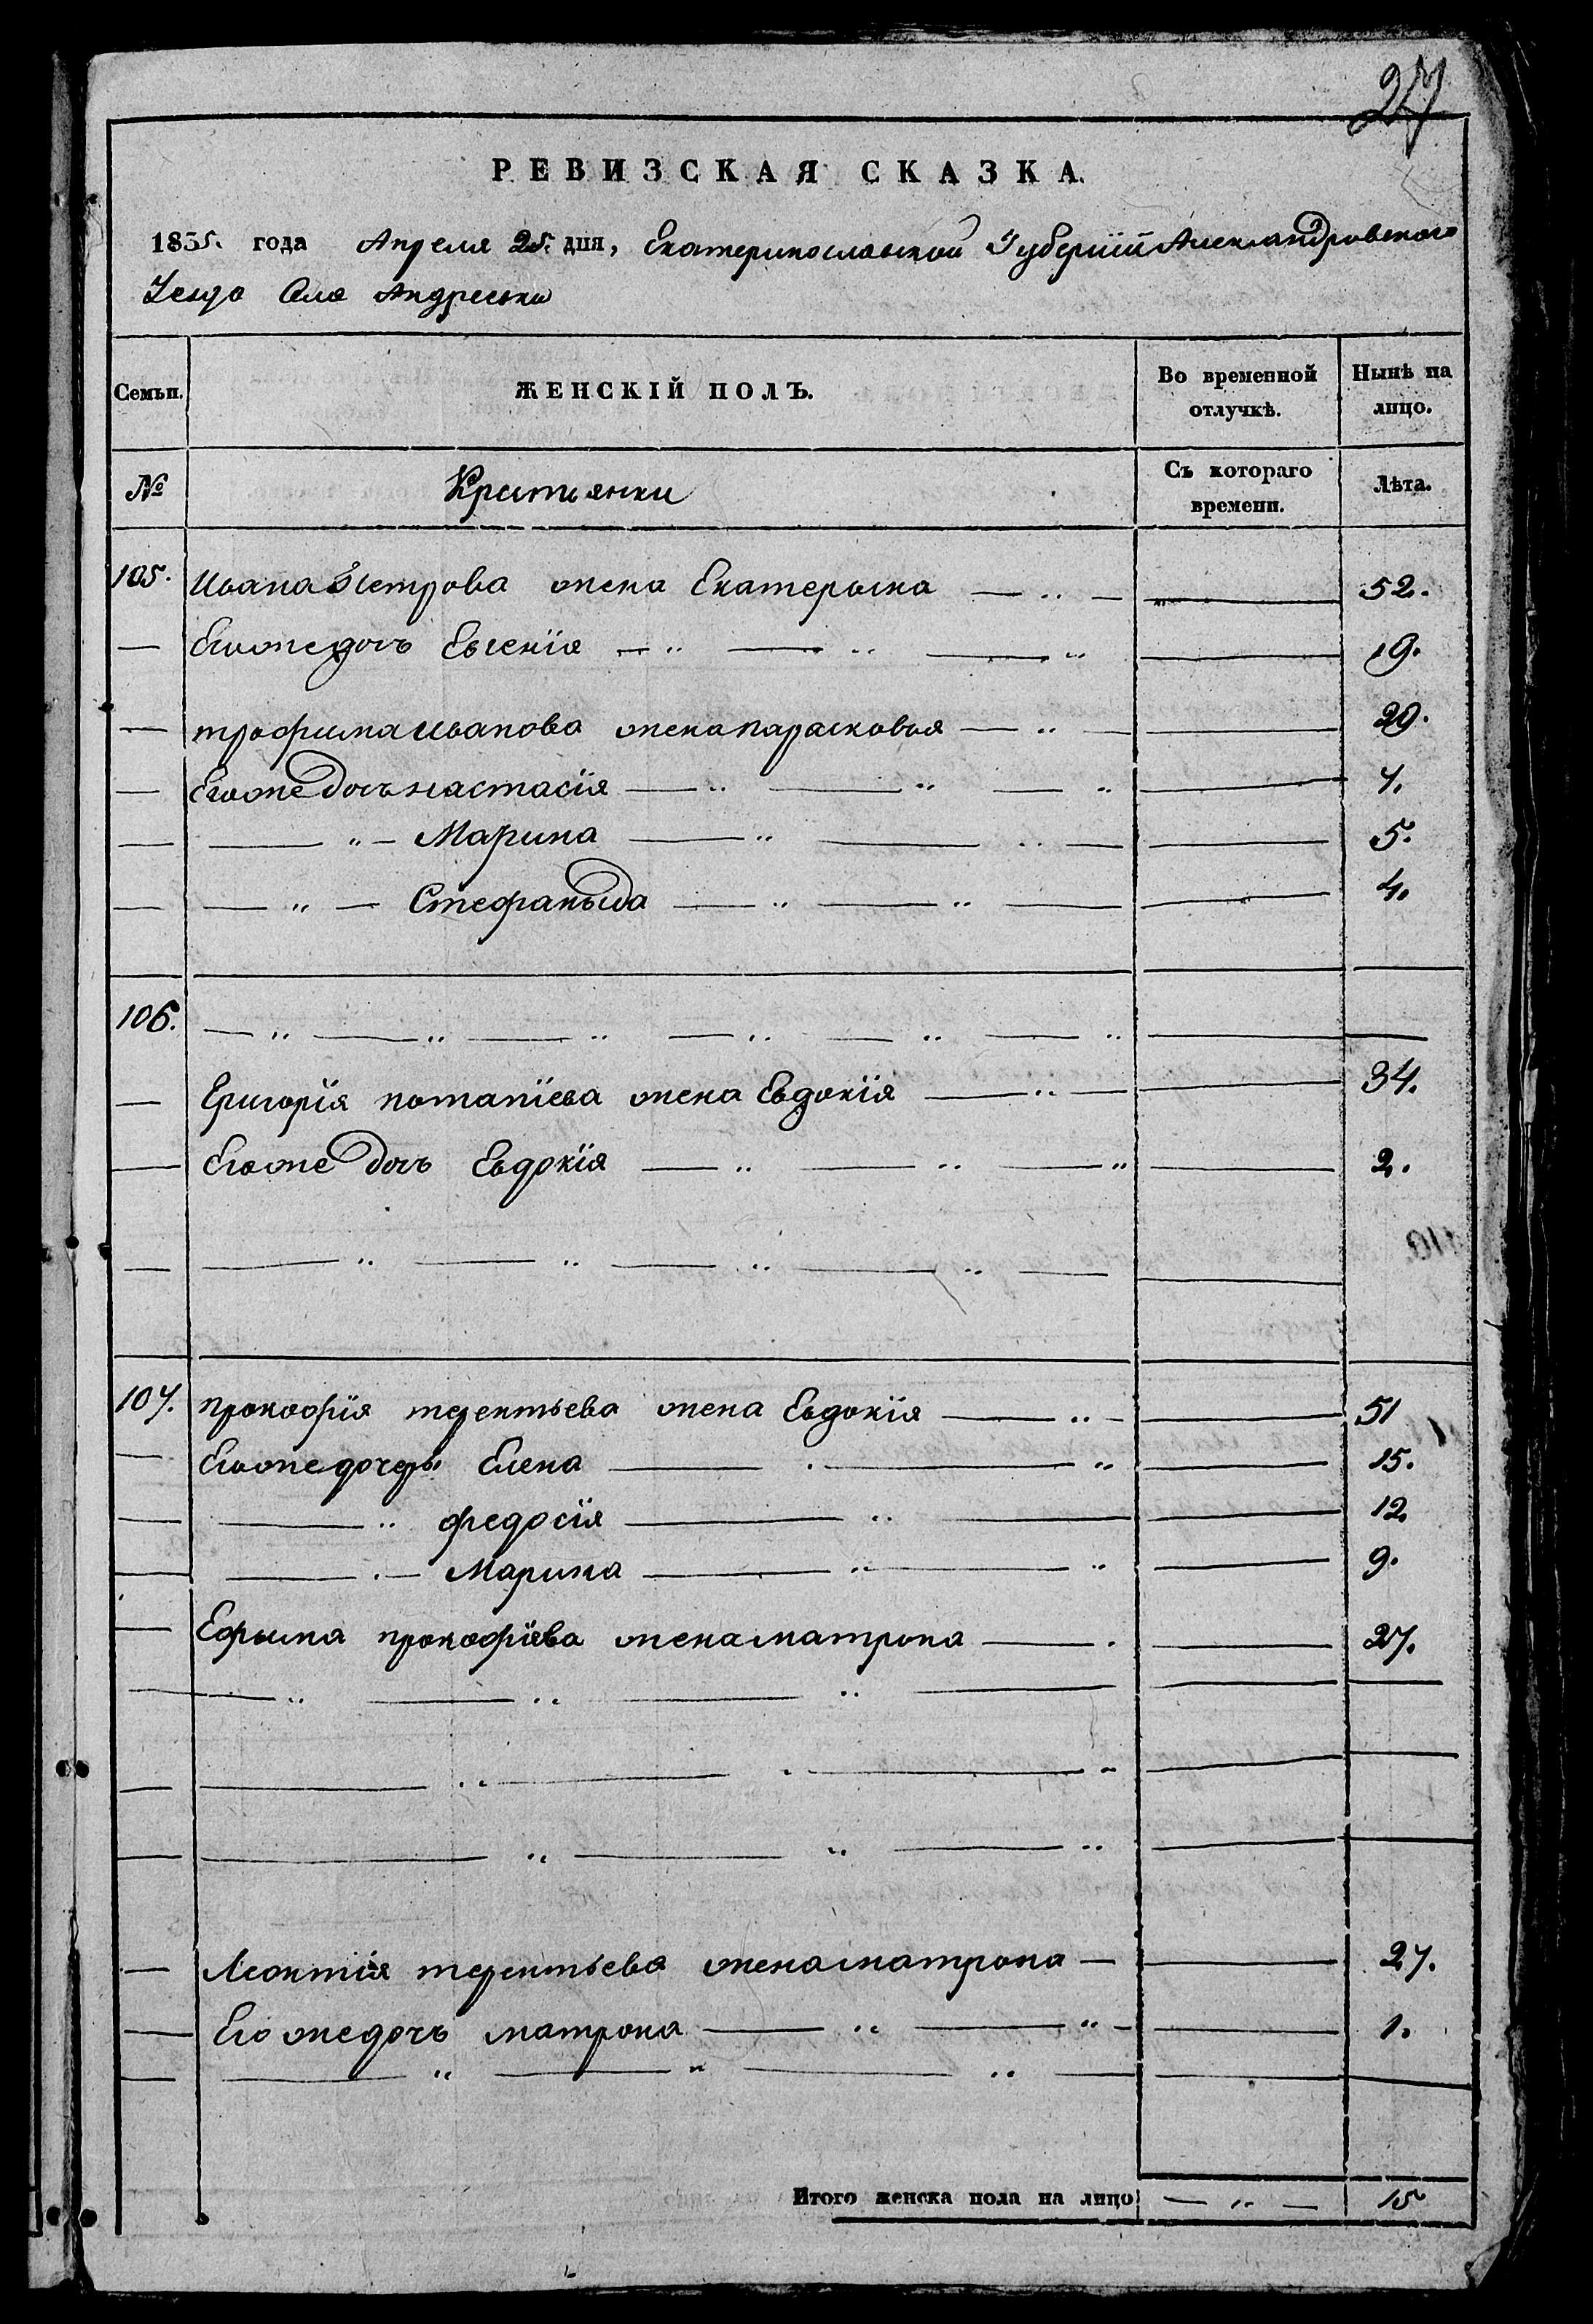 27
РЕВИЗСКАЯ СКАЗКА.
1835. года Апреля 25. дня, Екатеринославской Губернїй Александровского
Уезда Села Андреевки
Семьи. ЖЕНСКІЙ ПОЛЪ. Во временной отлучкѣ. Нынѣ на лицо.
№ Крестьянки Съ котораго времени. Лѣта.
105. Ивана Петрова жена Екатерына — 52.
— Егоже дочъ Евгенїя — 19.
— трофима иванова жена парасковья — 29.
— Егоже дочъ настасїя — 7.
— " — Марина — 5.
— " — Стефаныда — 4.
106. — " — " — " —
— Григорїя потапїева жена Евдокїя — 34.
— Егоже дочъ Евдокїя — 2.
— " — " — " —
107. прокофїя терентьева жена Евдокїя — 51
— Егоже дочеры Елена — 15.
— " федосїя — 12.
— " — Марина — 9.
— Ефыма прокофїева жена матрона — 27.
— " — " — " —
— " — " — " —
— " — " — " —
— Леонтїя терентьева жена матрона — 27.
— Его же дочъ матрона — 1.
— " — " — " —
Итого женска пола на лицо — " — 15